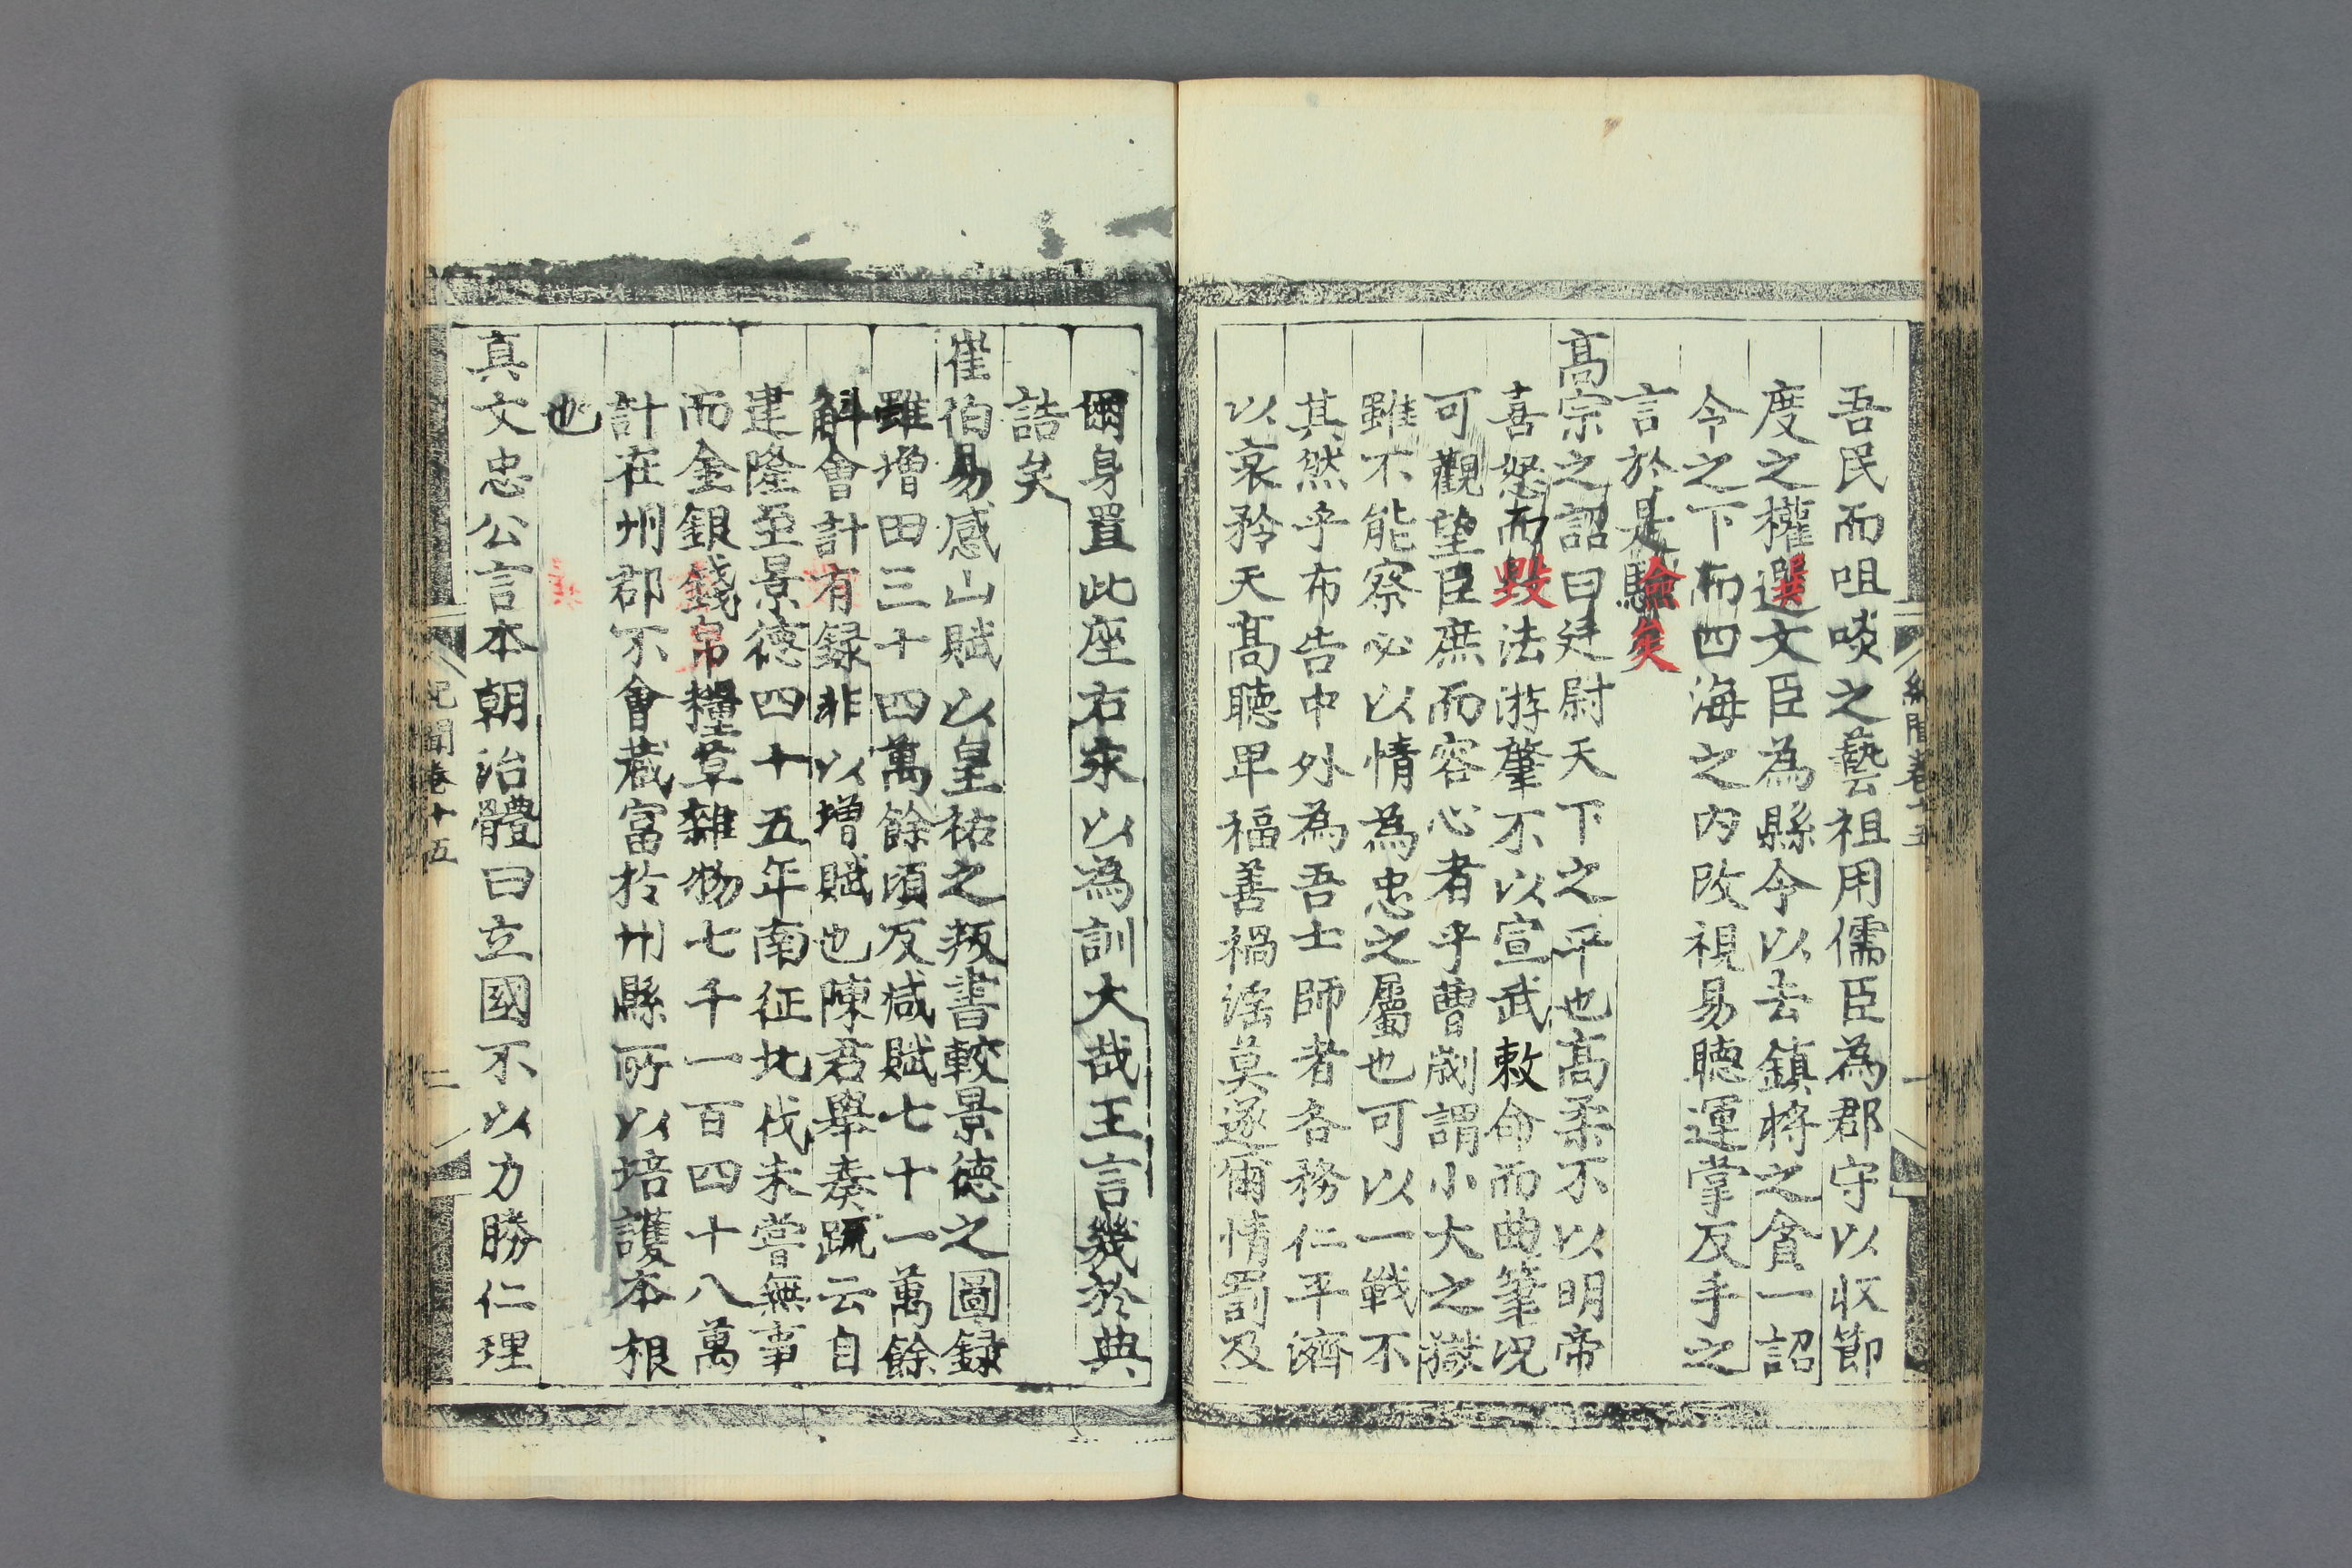 吾民而咀啖之藝祖用儒臣為郡守以収節
度之權選文臣為縣令以去鎮將之貪一詔
令之下而四海之内改視易聴運掌反手之
言於是驗矣
髙宗之詔曰廷尉天下之平也髙柔不以明帝
喜怒而毀法游肇不以宣武敕命而曲筆况
可觀望臣庶而容心者乎曹劌謂小大之獄
雖不能察必以情為忠之屬也可以一戰不
其然乎布告中外為吾士師者各務仁平濟
以哀矜天髙聴卑福善禍淫莫遂爾情罰及
爾身置此座右永以為訓大哉王言幾於典
誥矣
崔伯易感山賦以皇祐之版書較景德之圖録
雖增田三十四萬餘頃反減賦七十一萬餘
斛會計有録非以增賦也陳君舉奏疏云自
建隆至景德四十五年南征北伐未嘗無事
而金銀錢帛糧草雜物七千一百四十八萬
計在州郡不會藏富於州縣所以培護本根
也
真文忠公言本朝治體曰立國不以力勝仁理
紀聞卷十五
一
紀聞卷十五
二